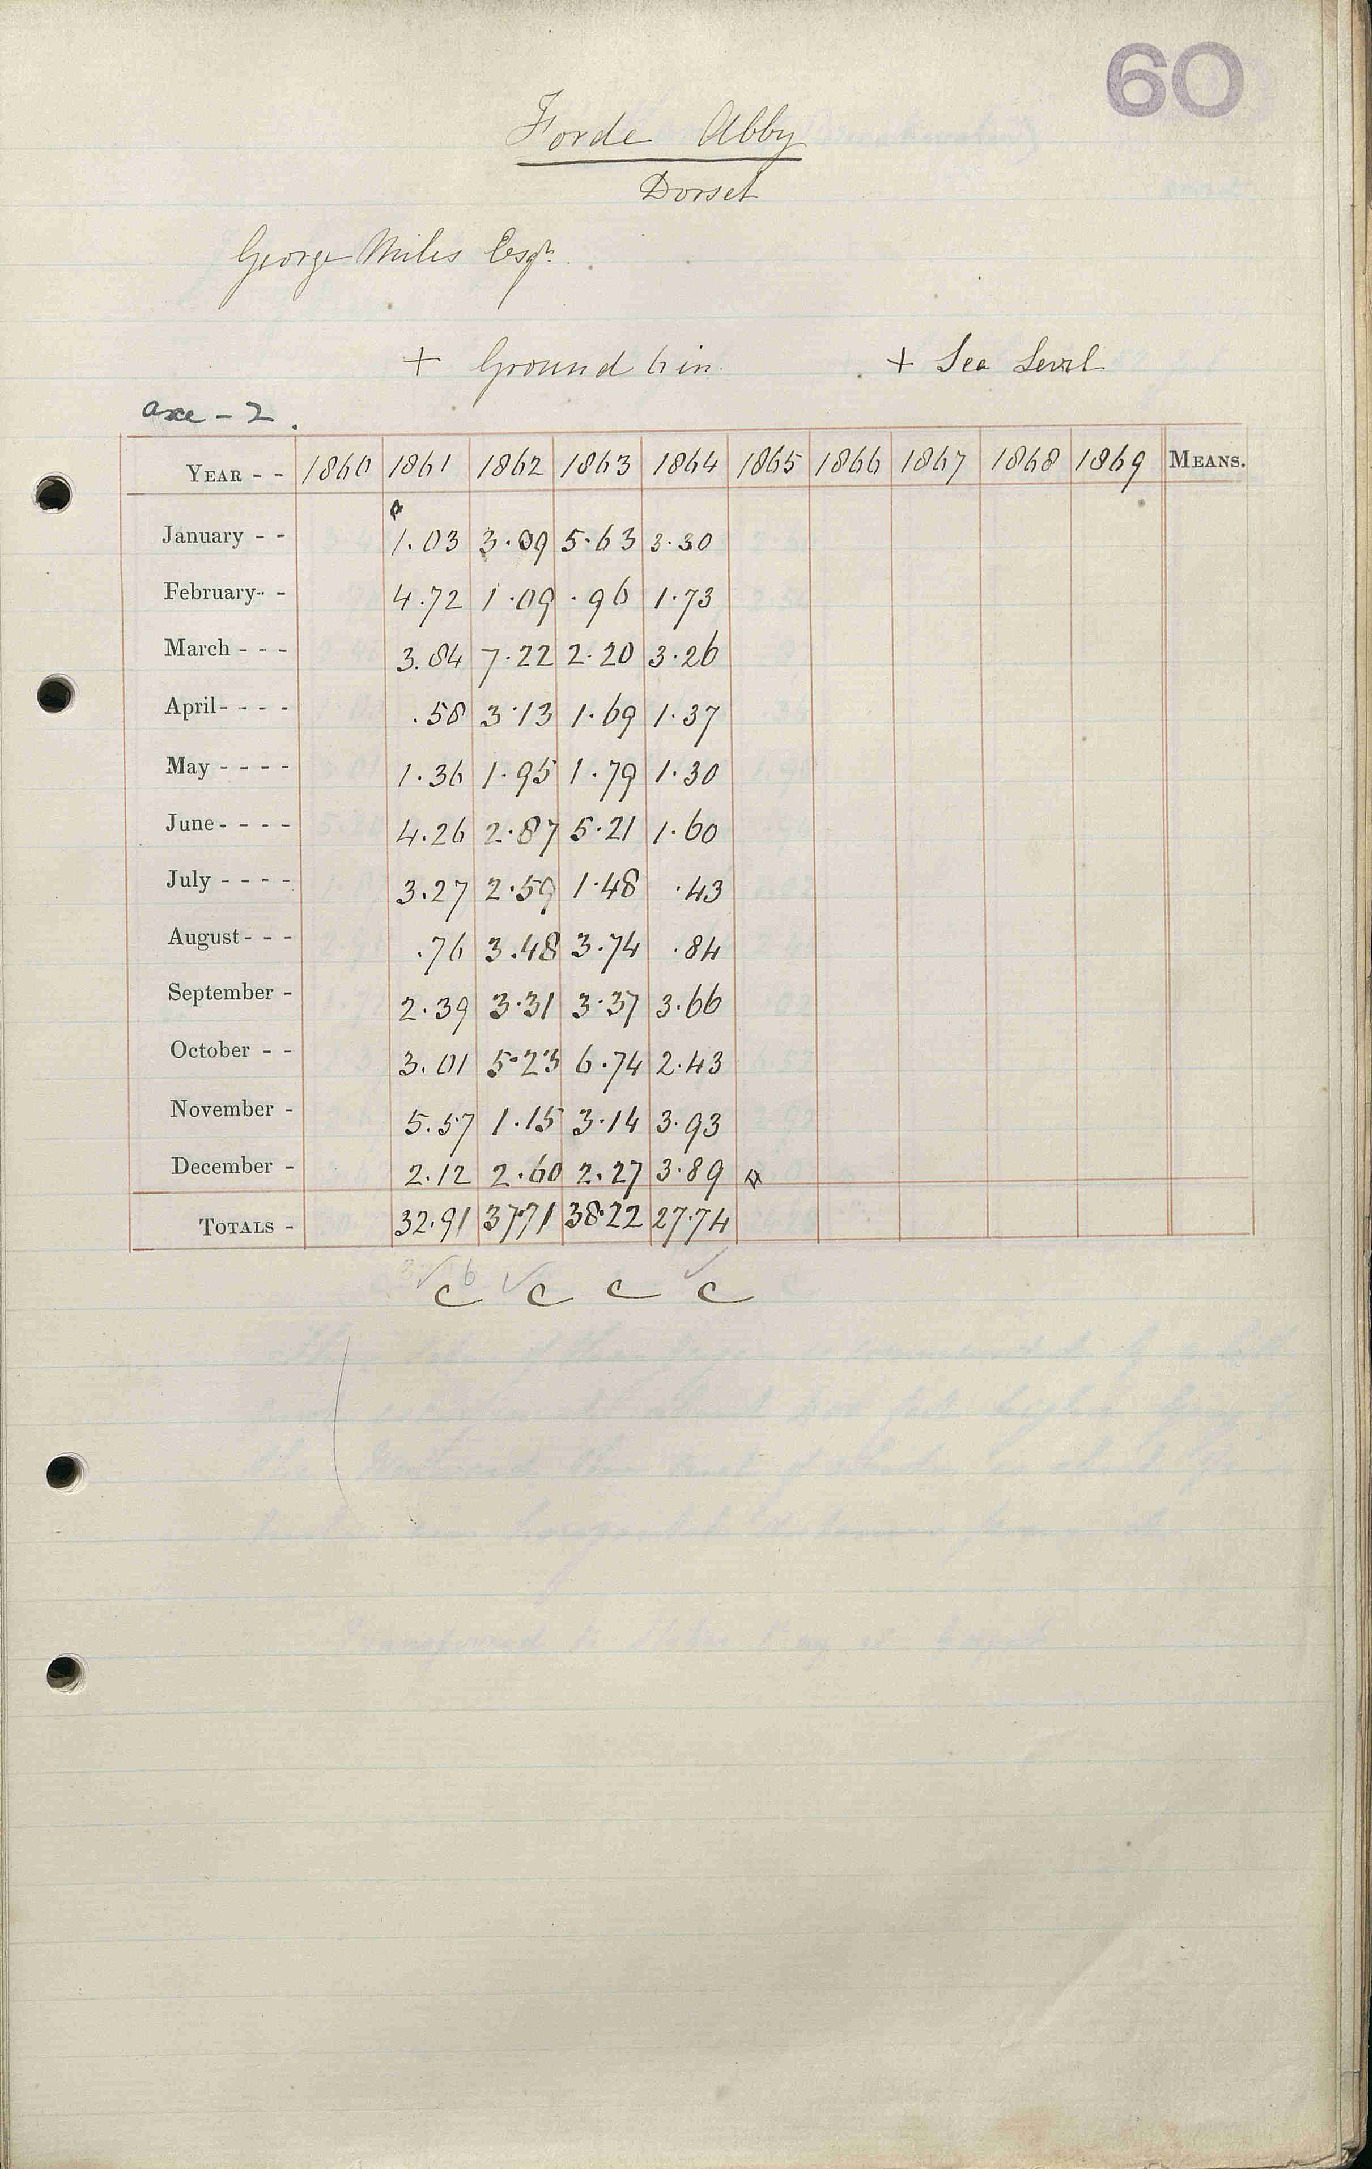 60
Forde Abby
Dorset
George Miles Esqr.
+ Ground 6 in + Sea Level
axe - 2.
YEAR - - 1860 1861 1862 1863 1864 1865 1866 1867 1868 1869 MEANS.
January - - 1.03 3.09 5.63 3.30
February - - 4.72 1.09 .96 1.73
March - - - 3.84 7.22 2.20 3.26
April - - - - .58 3.13 1.69 1.37
May - - - - 1.36 1.95 1.79 1.30
June - - - - 4.26 2.87 5.21 1.60
July - - - - 3.27 2.59 1.48 .43
August - - - .76 3.48 3.74 .84
September - 2.39 3.31 3.37 3.66
October - - 3.01 5.23 6.74 2.43
November - 5.57 1.15 3.14 3.93
December - 2.12 2.60 2.27 3.89
TOTALS - 32.91 37.71 38.22 27.74
c c c c